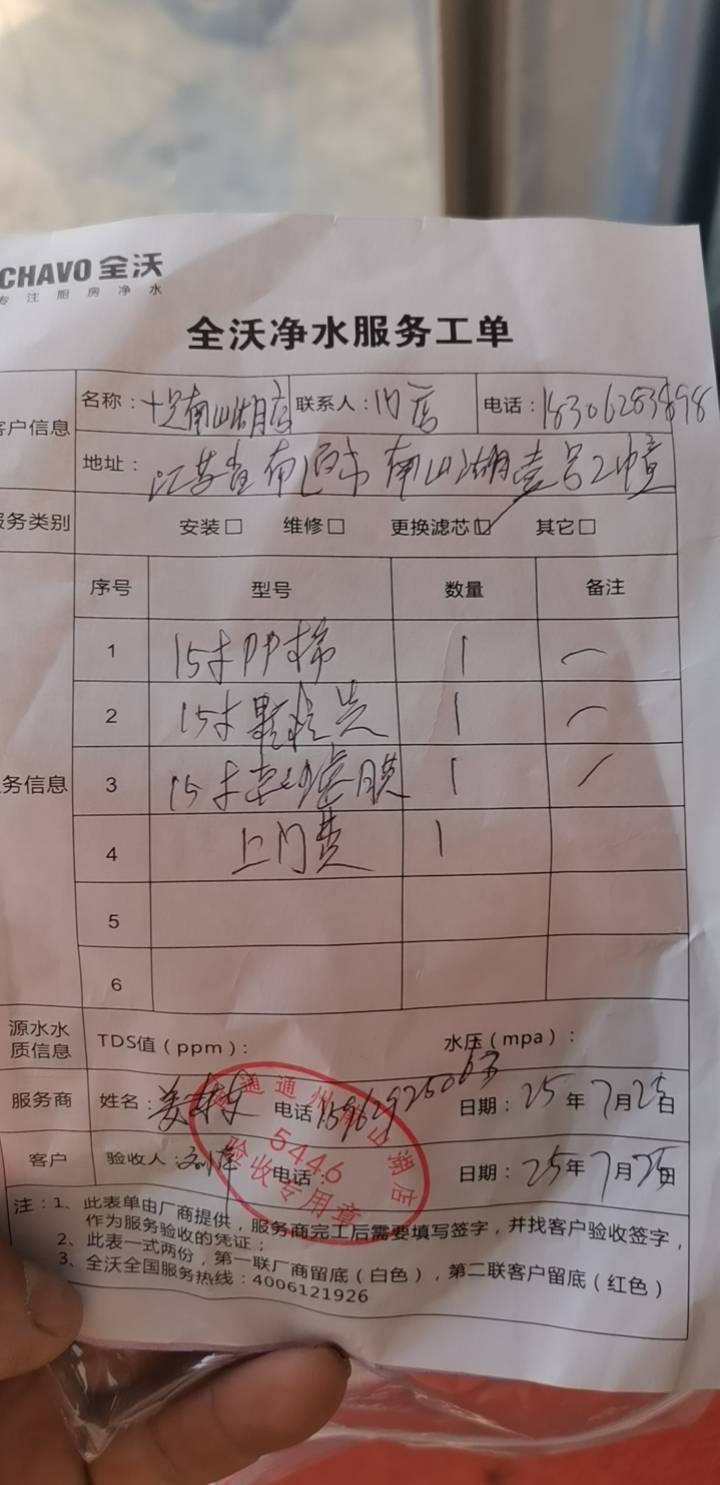 CHAVO 全沃
专注厨房净水
全沃净水服务工单
客户信息
名称： 南山湖店 联系人：门店 电话：
地址：江苏省南通市南山湖壹号2幢
服务类别 安装□ 维修□ 更换滤芯☑ 其它□
序号 型号 数量 备注
服务信息
1 15寸PP棉 1 —
2 15寸颗粒炭 1 —
3 15寸 滤膜 1 /
4 上门费 1
5
6
源水水质信息 TDS值（ppm）： 水压（mpa）：
服务商 姓名： 电话 15962925063 日期：25年7月25日
客户 验收人： 电话： 日期：25年7月25日
南通通州南山湖店
5446
验收专用章
注：1、此表单由厂商提供，服务商完工后需要填写签字，并找客户验收签字，
作为服务验收的凭证；
2、此表一式两份，第一联厂商留底（白色），第二联客户留底（红色）
3、全沃全国服务热线：4006121926